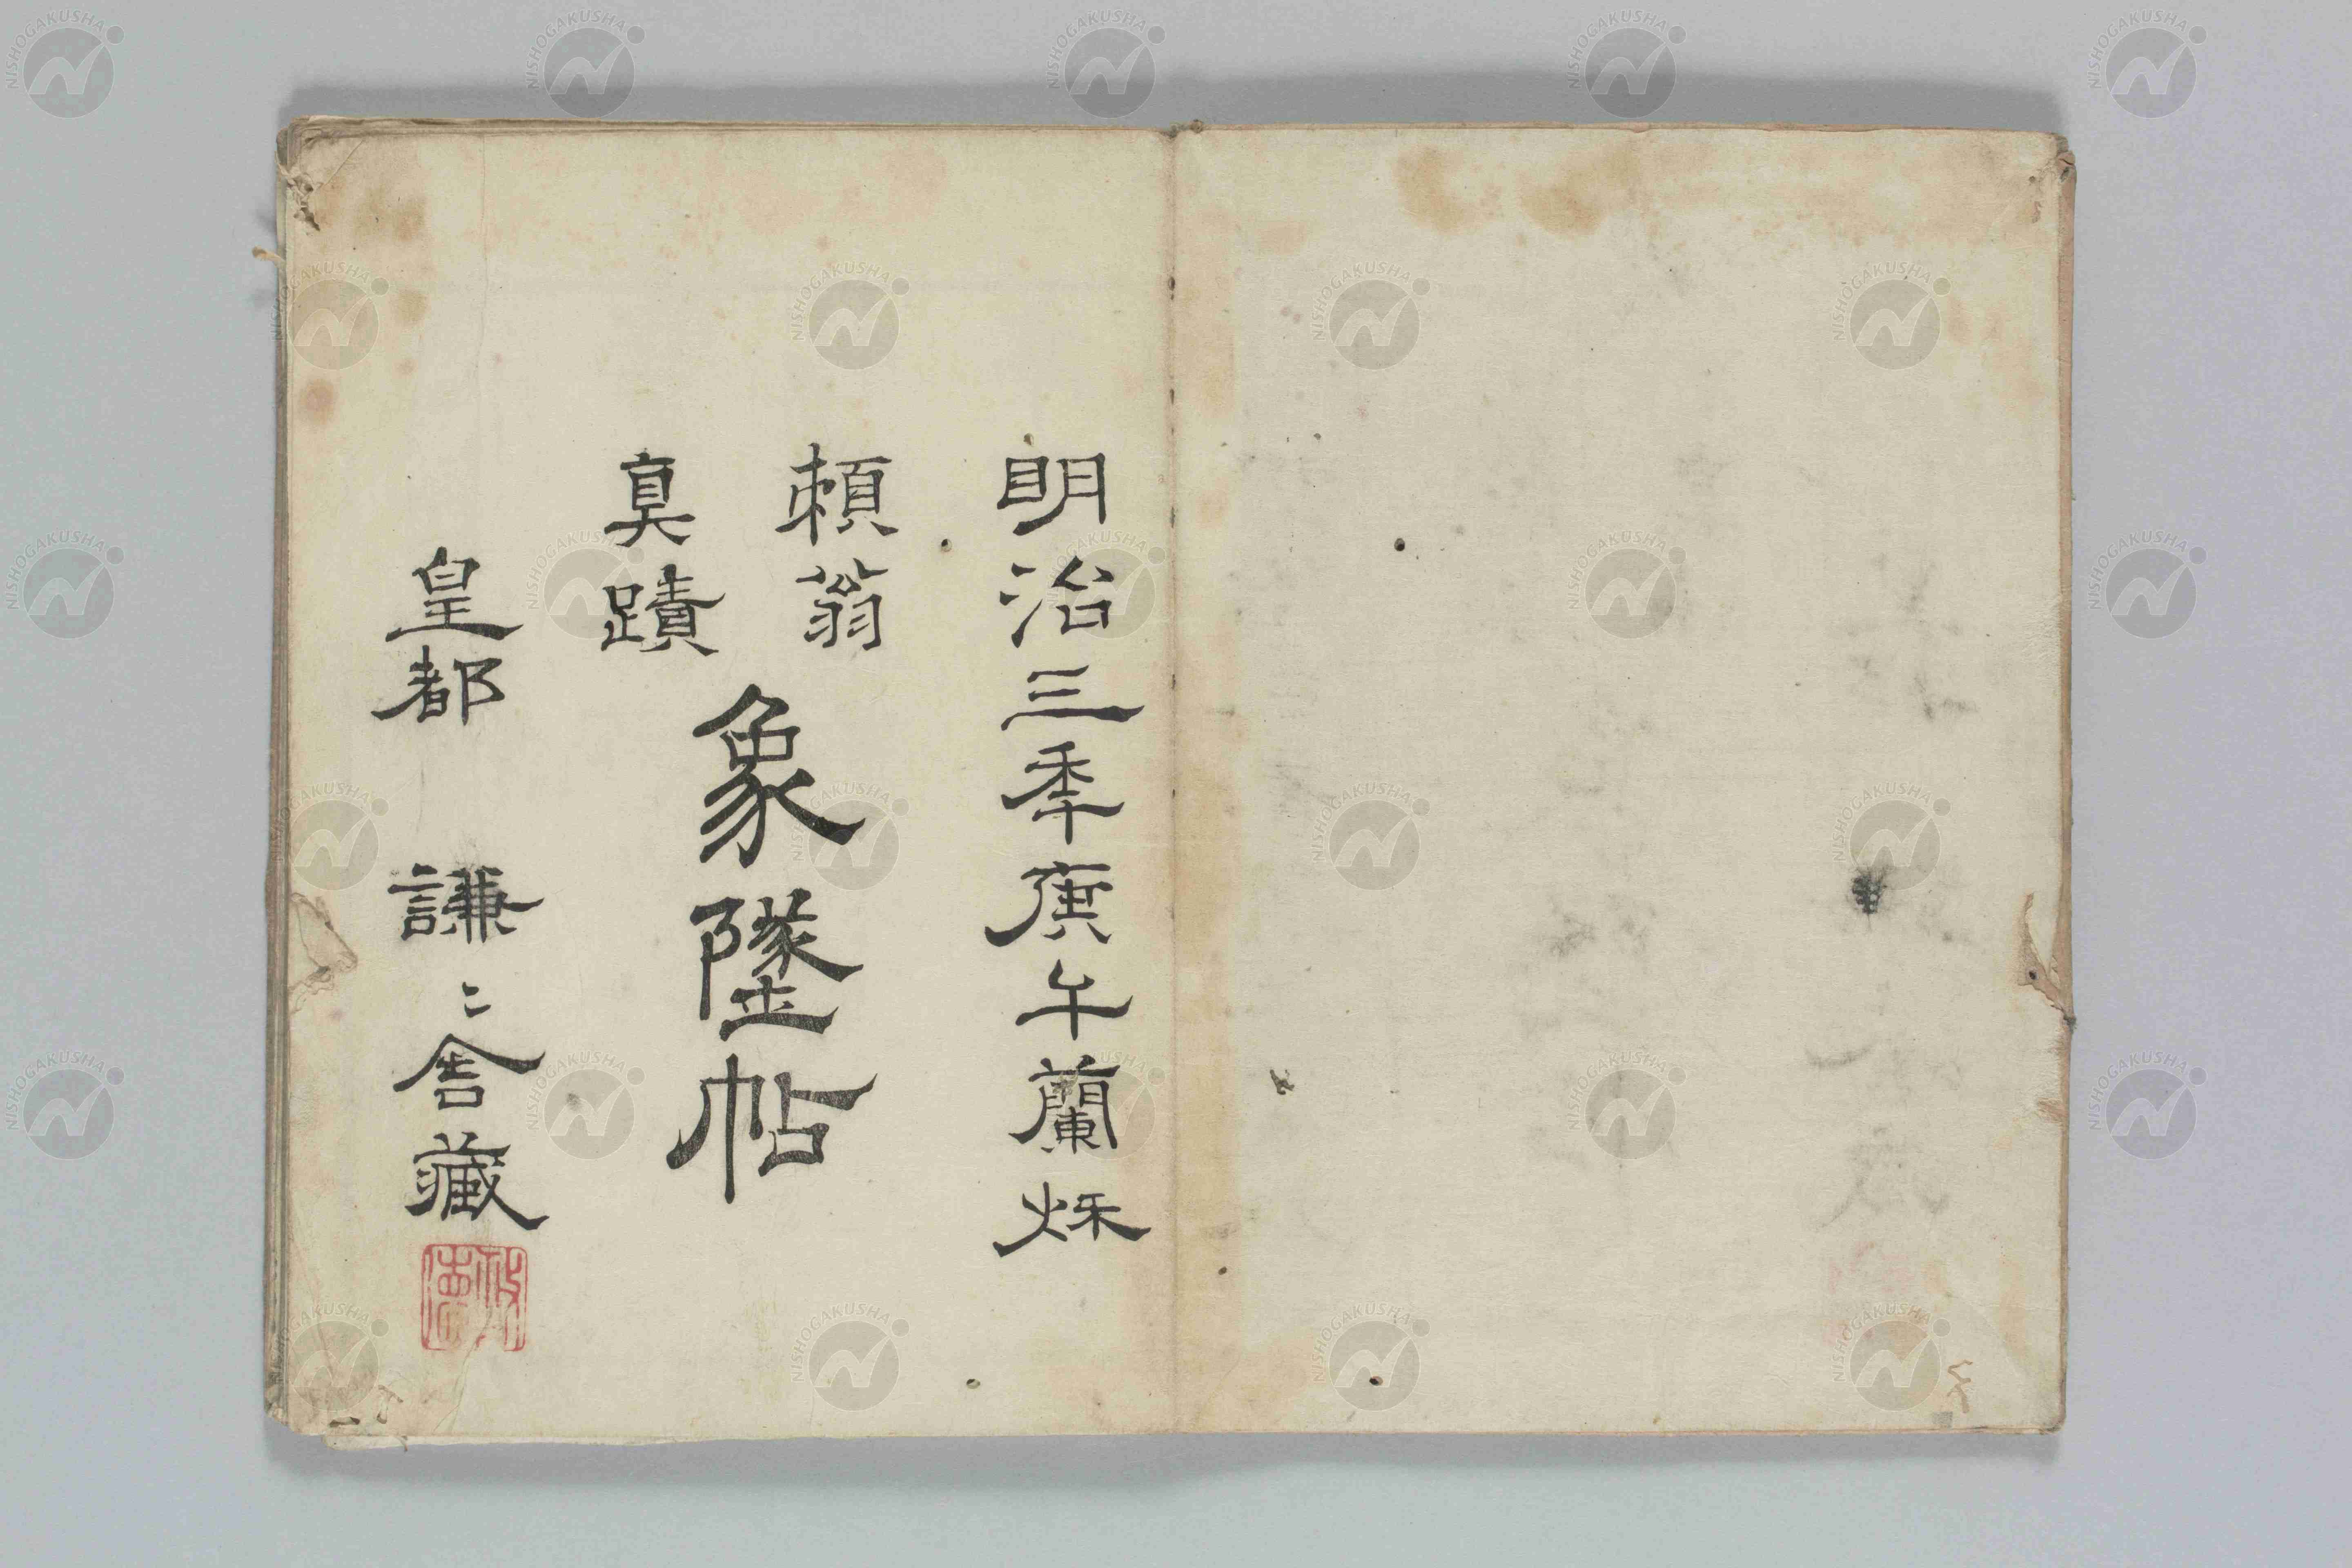 明治三季庚午蘭烁
頼翁
真蹟
象墜帖
皇都 謙〻舎藏
NISHOGAKUSHA